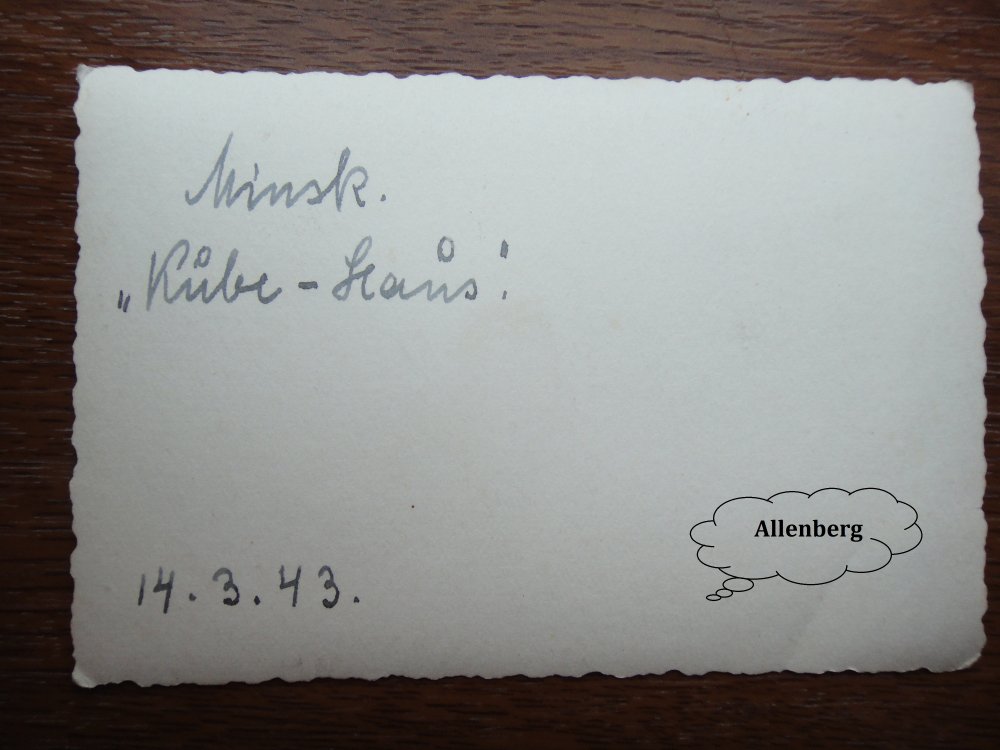 Minsk.
„Kube-Haus".
14.3.43.
Allenberg